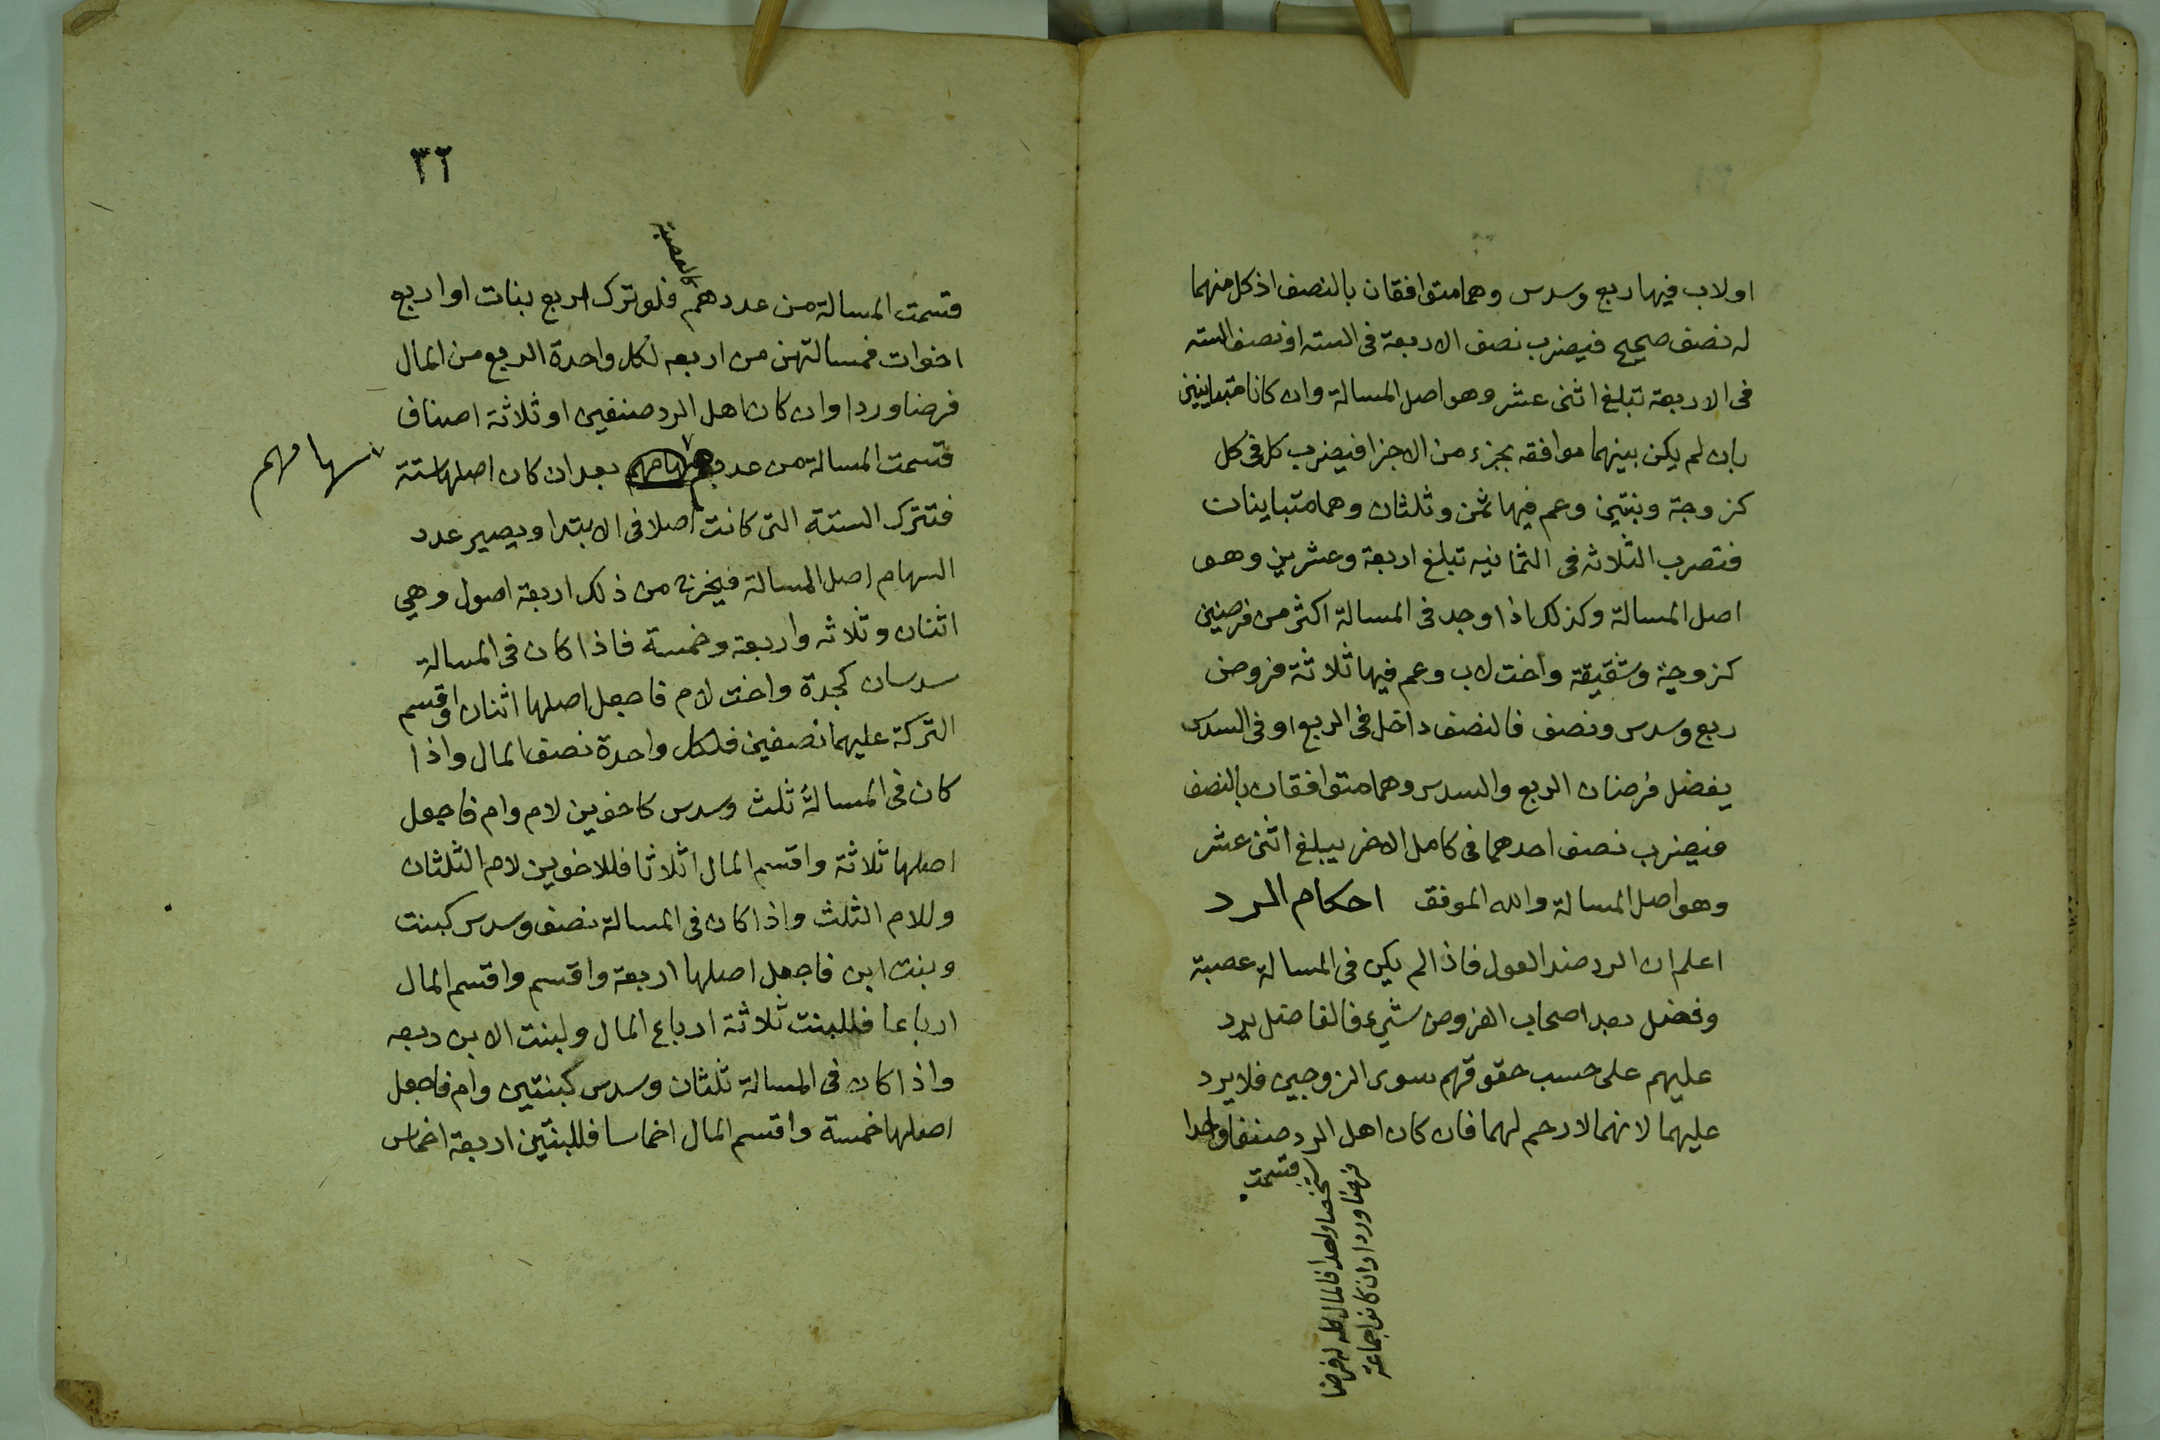 اولاب فيها ربع وسدس وهما متوافقان بالنصف اذ كل منهما
له نصف صحيح فيضرب نصف الاربعة فى الستة او نصف الستة
فى الاربعة تبلغ اثنى عشر وهو اصل المسالة وان كانا متباينين
بان لم يكن بينهما موافقه بجزء من الاجزا فيضرب كل فى كل
كزوجة وبنتين وعم فيها ثمن وثلثان وهما متباينات
فتضرب الثلاثه فى الثمانيه تبلغ اربعة وعشرين وهو
اصل المسالة وكذلك اذا وجد فى المسالة اكثر من فرضين
كزوجة وشقيقة واخت لاب وعم فيها ثلاثة فروض
ربع وسدس ونصف فالنصف داخل فى الربع او فى السدس
يفضل فرضان الربع والسدس وهما متوافقان بالنصف
فيضرب نصف احدهما فى كامل الاخر يبلغ اثنى عشر
وهو اصل المسالة والله الموفق احكام الرد
اعلم ان الرد ضد العول فاذا لم يكن فى المسالة عصبة
وفضل بعد اصحاب الفروض شيء فالفاضل يرد
عليهم على حسب حقوقهم سوى الزوجين فلا يرد
عليهما لانهما لا رحم لهما فان كان اهل الرد صنفا واحدا
قسمت
شخصا واحدا فالمال كله له فرضا
فرضا وردا وان كانوا جماعة
٣٢
كالعصبة
قسمت المسالة من عددهم فلو ترك اربع بنات او اربع
اخوات فمسالتهن من اربعه لكل واحدة الربع من المال
فرضا وردا وان كان اهل الرد صنفين او ثلاثة اصناف
قسمت المسالة من عدد سهامهم بعد ان كان اصلها ستة
سهامهم
فتترك الستة التى كانت اصلا فى الابتدا ويصير عدد
السهام اصل المسالة فيخرج من ذلك اربعة اصول وهي
اثنان وثلاثه واربعة وخمسة فاذا كان فى المسالة
سدسان كجدة واخت لام فاجعل اصلها اثنان واقسم
التركة عليهما نصفين فلكل واحدة نصف المال واذا
كان فى المسالة ثلث وسدس كاخوين لام وام فاجعل
اصلها ثلاثة واقسم المال اثلاثا فللاخوين لام الثلثان
وللام الثلث واذا كان فى المسالة نصف وسدس كبنت
وبنت ابن فاجعل اصلها اربعة واقسم واقسم المال
ارباعا فللبنت ثلاثة ارباع المال ولبنت الابن ربعه
واذا كان فى المسالة ثلثان وسدس كبنتين وام فاجعل
اصلها خمسة واقسم المال اخماسا فللبنتين اربعة اخماس